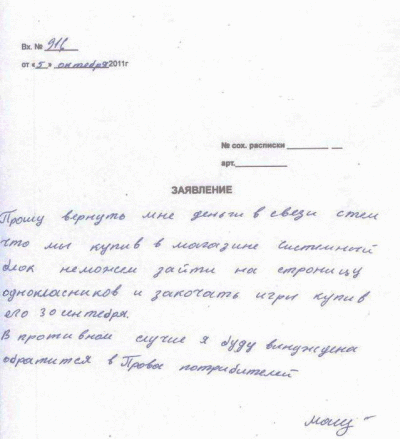 Вх. № 916
от «5» октября 2011г
№ сох. расписки ________ __
арт.__________
ЗАЯВЛЕНИЕ
Прошу вернуть мне деньги в свези стем
что мы купив в магазине системный
блок неможем зайти на строницу
однокласников и закочать игры купив
его 30 сентебря.
В противном случие я буду винуждена
обратится в Права потрибителей